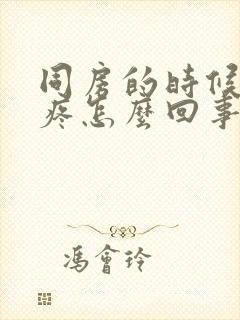 同房的時候
疼怎麼回事
馮會玲